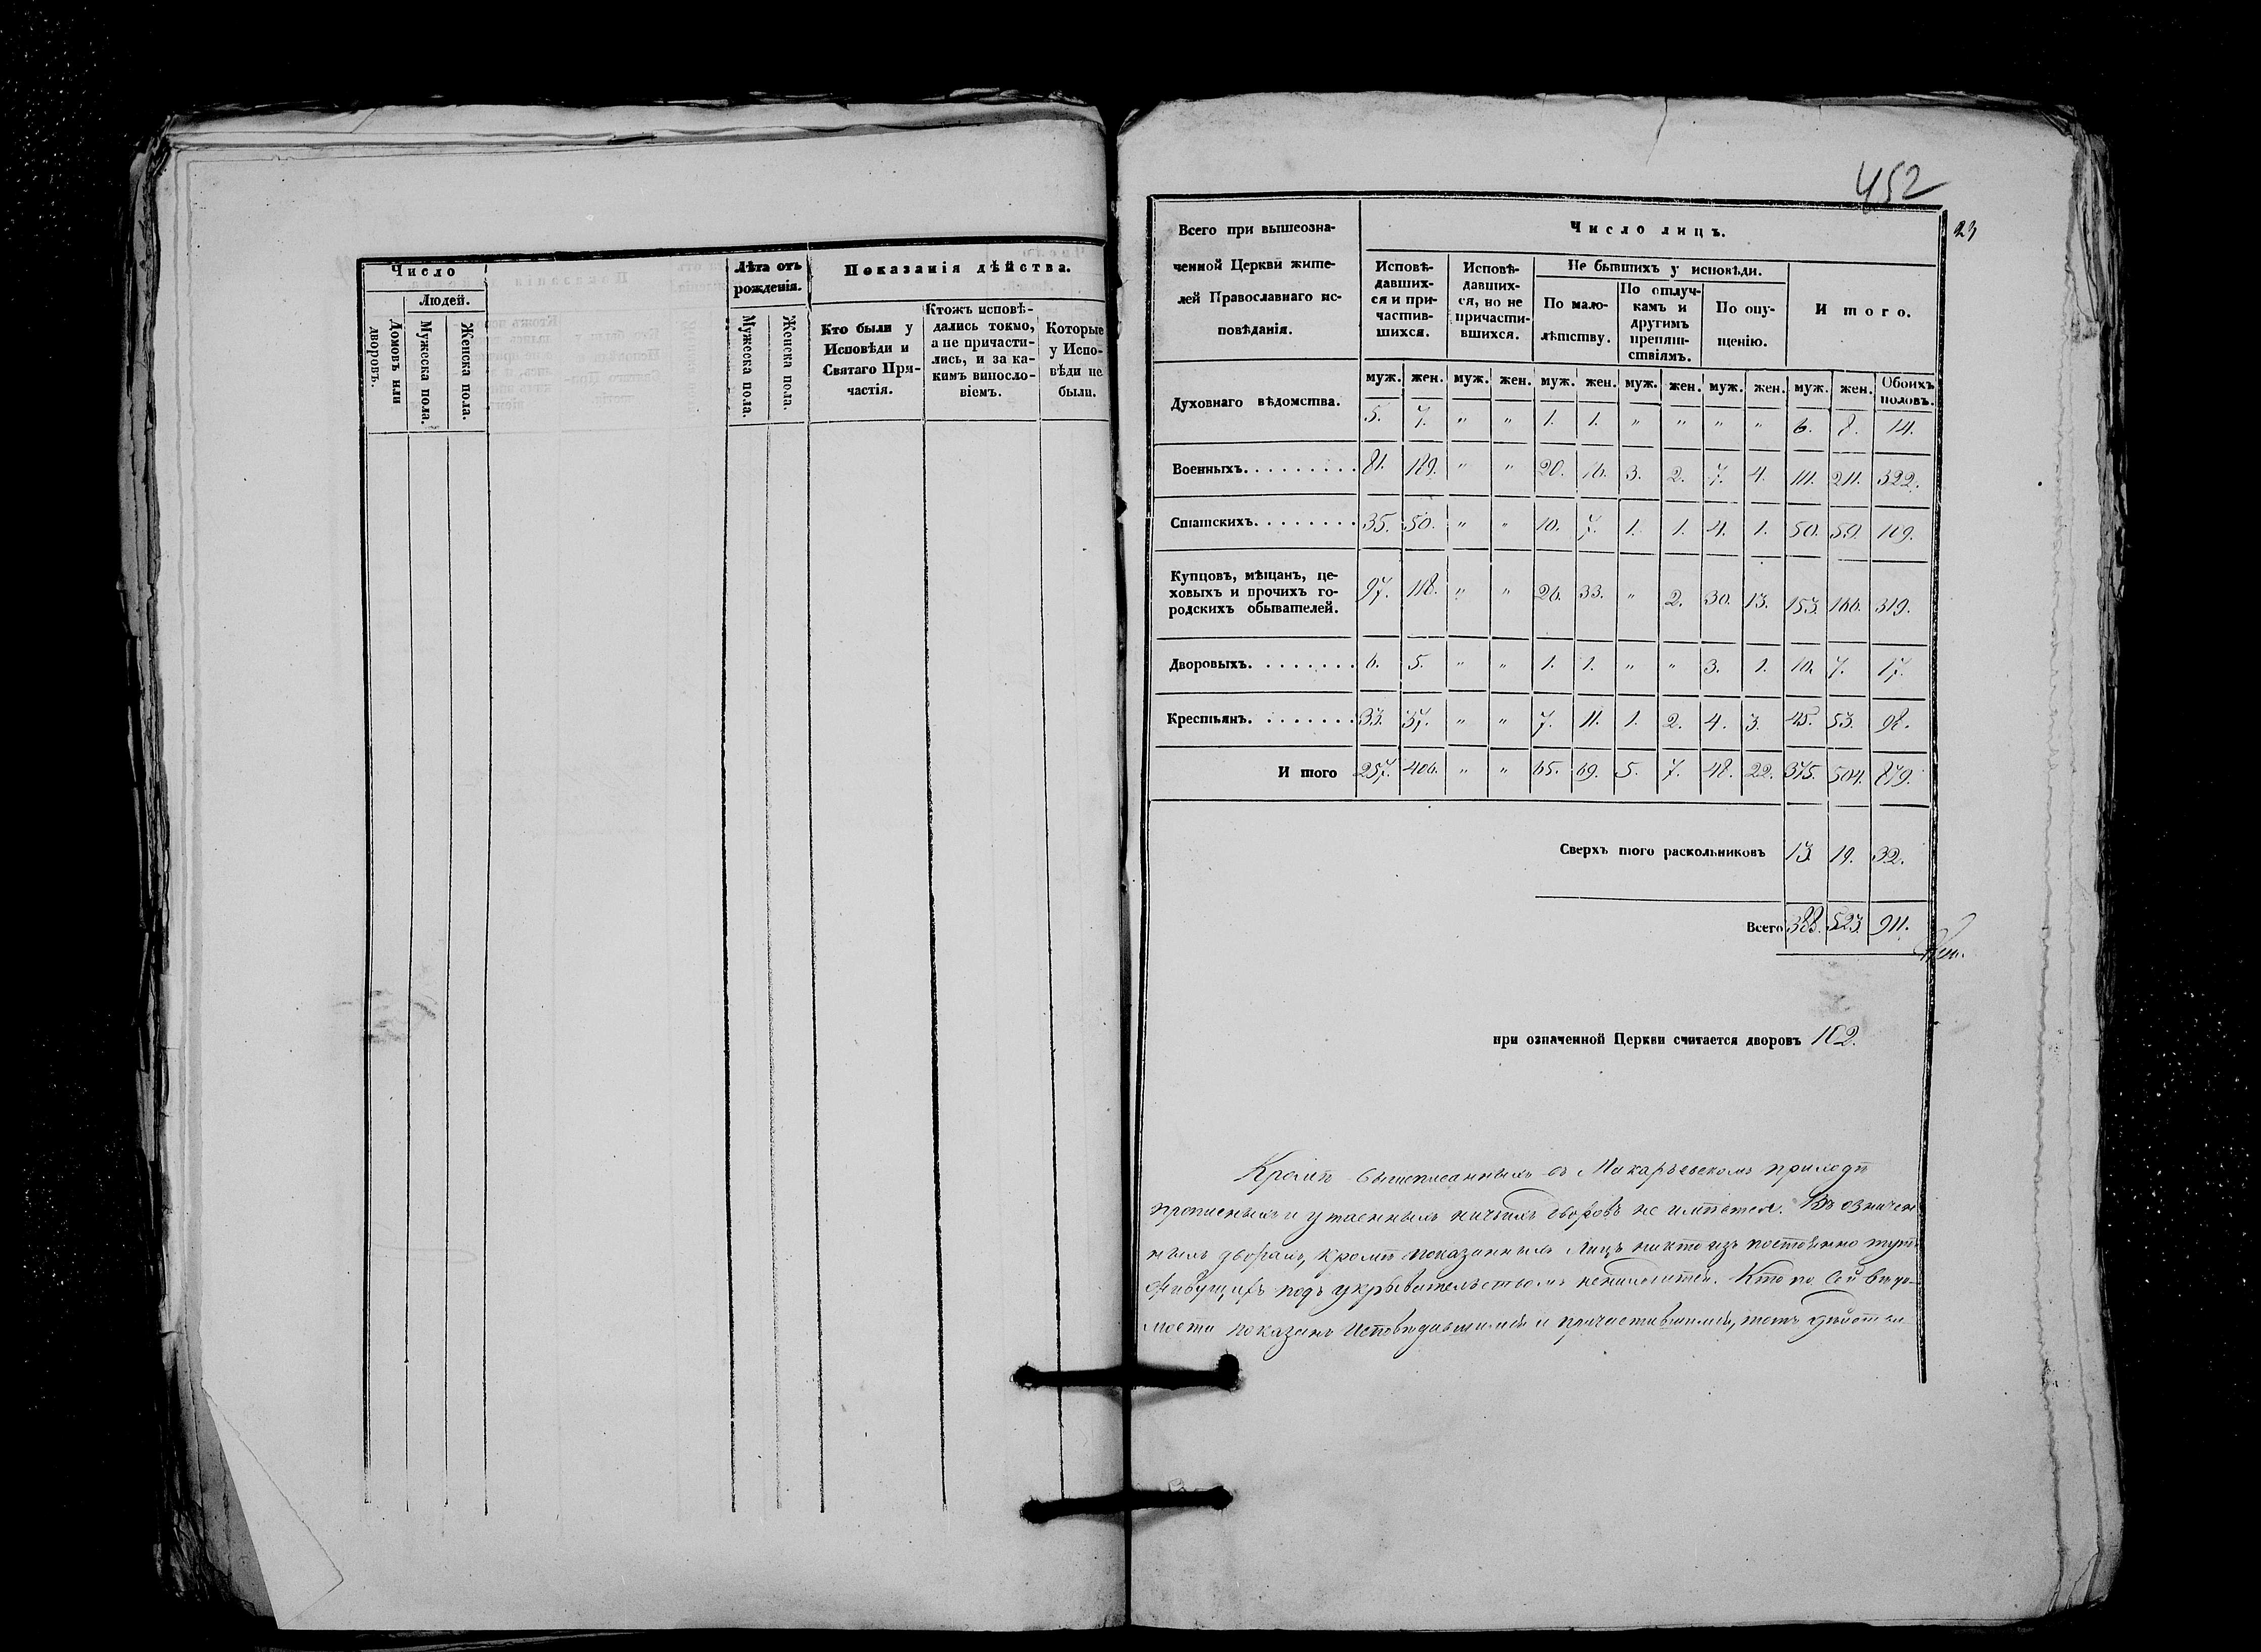 Число
Людей.
Домовъ или дворовъ.
Мужеска пола.
Женска пола.
Лѣта отъ рожденія.
Мужеска пола.
Женска пола.
Показанія дѣйства.
Кто были у
Исповѣди и
Святаго При-
частія.
Ктожъ исповѣ-
дались токмо,
а не причасти-
лись, и за ка-
кимъ винословіемъ.
Которые
у Испо-
вѣди не
были.
452
23
Всего при вышеозна-
ченной Церкви жите-
лей Православнаго ис-
повѣданія.
Число лицъ.
Исповѣ-
давших-
ся и при-
частив-
шихся.
Исповѣ-
давших-
ся, но не
причасти-
вшихся.
Не бывшихъ у исповѣди.
По мало-
лѣтству.
По отлуч-
камъ и
другимъ
препят-
ствіямъ.
По опу-
щенію.
Итого.
муж. жен. муж. жен. муж. жен. муж. жен. муж. жен. муж. жен. Обоихъ половъ.
Духовнаго вѣдомства. 5. 7. " " 1. 1. " " " " 6. 8. 14.
Военныхъ. . . . . . . . . 81. 189. " " 20. 16. 3. 2. 7. 4. 111. 211. 322.
Статскихъ. . . . . . . . 35. 50. " " 10. 7. 1. 1. 4. 1. 50. 59. 109.
Купцовъ, мѣщанъ, це-
ховыхъ и прочихъ го-
родскихъ обывателей. 97. 118. " " 26. 33. " 2. 30. 13. 153. 166. 319.
Дворовыхъ. . . . . . . . 6. 5. " " 1. 1. " " 3. 1. 10. 7. 17.
Крестьянъ. . . . . . . . 33. 37. " " 7. 11. 1. 2. 4. 3. 45. 53. 98.
И того 257. 406. " " 65. 69. 5. 7. 48. 22. 375. 504. 879.
Сверхъ того раскольниковъ 13. 19. 32.
Всего 388. 523. 911.
при означенной Церкви считается дворовъ 102.
Кромѣ вышеписанныхъ въ Макарьевскомъ приходѣ
прописныхъ и утаенныхъ ничьихъ дворовъ не имѣется. Въ означен
ныхъ дворахъ, кромѣ показанныхъ лицъ никто изъ постоянно тутъ
живущихъ подъ укрывательствомъ не находится. Кто по сей вѣдо-
мости показанъ исповѣдавшимся и причастившимся, тотъ дѣйстви